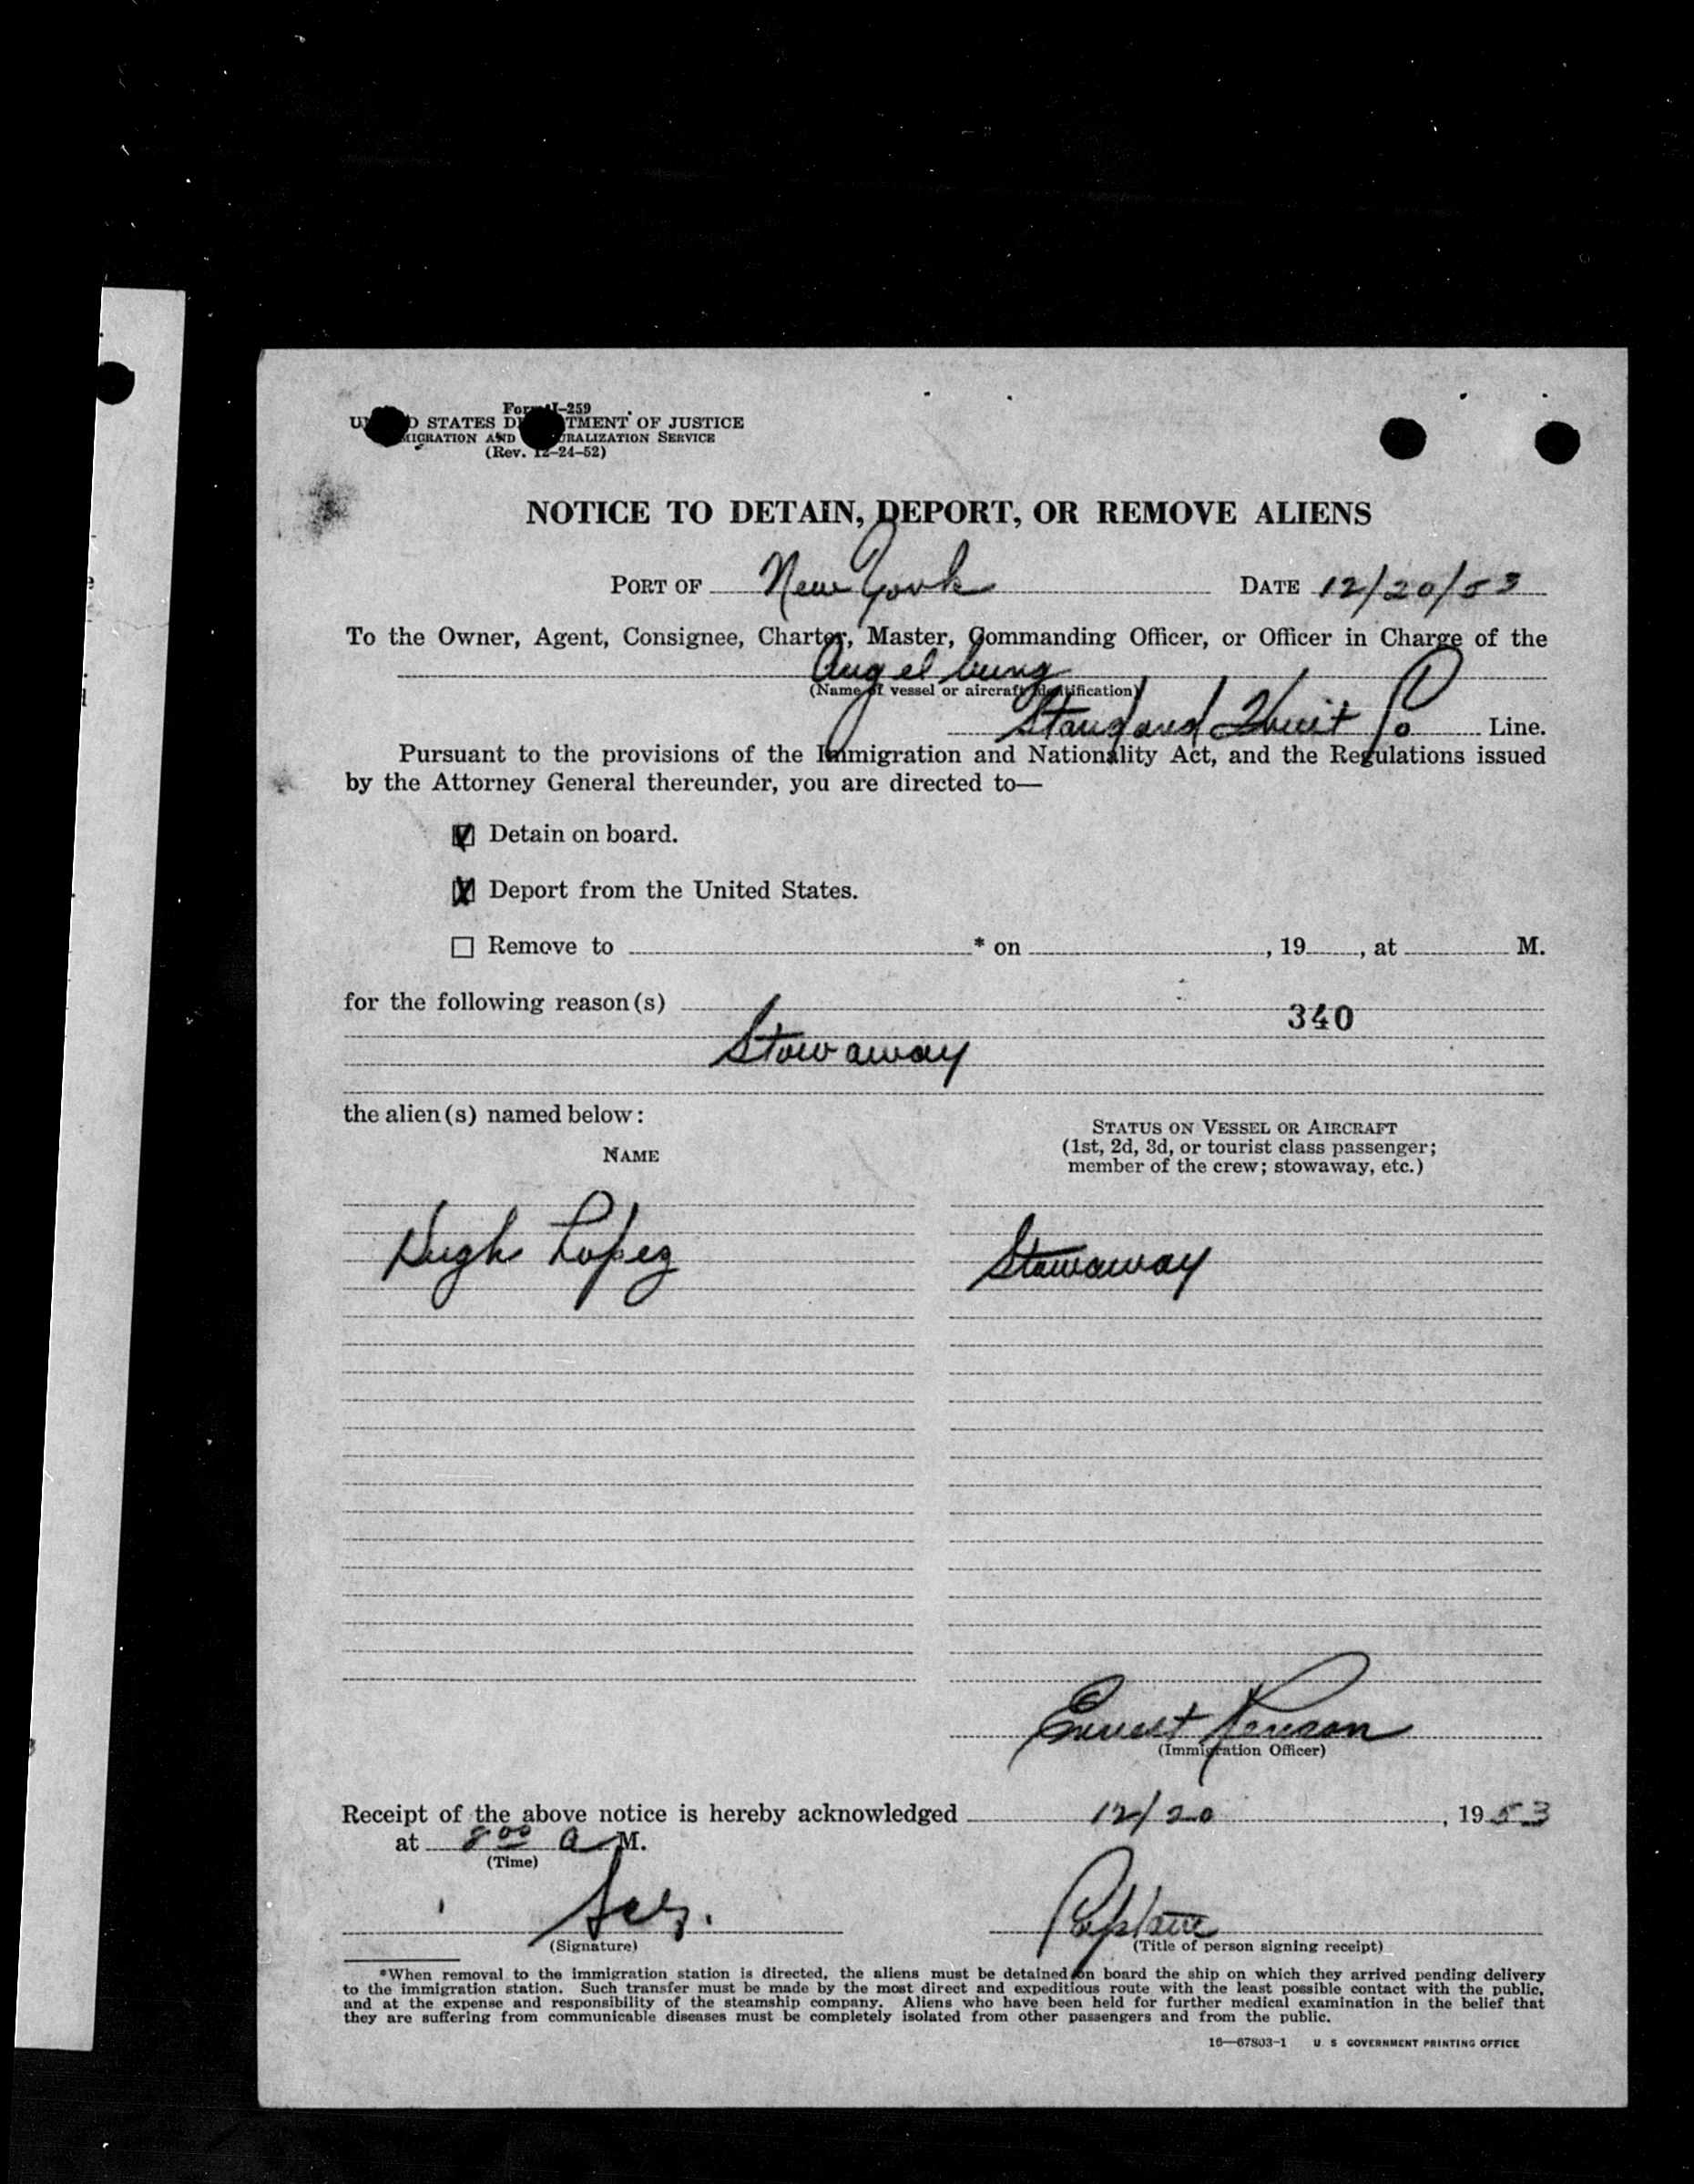 Form I-259
UNITED STATES DEPARTMENT OF JUSTICE
IMMIGRATION AND NATURALIZATION SERVICE
(Rev. 12-24-52)
NOTICE TO DETAIN, DEPORT, OR REMOVE ALIENS
PORT OF New York DATE 12/20/53
To the Owner, Agent, Consignee, Charter, Master, Commanding Officer, or Officer in Charge of the
Angelburg
(Name of vessel or aircraft identification)
Standard Fruit Co Line.
Pursuant to the provisions of the Immigration and Nationality Act, and the Regulations issued
by the Attorney General thereunder, you are directed to—
Detain on board.
Deport from the United States.
Remove to * on , 19 , at M.
for the following reason(s)
340
Stowaway
the alien(s) named below:
STATUS ON VESSEL OR AIRCRAFT
(1st, 2d, 3d, or tourist class passenger;
member of the crew; stowaway, etc.)
NAME
Hugh Lopez Stowaway
Ernest
(Immigration Officer)
Receipt of the above notice is hereby acknowledged 12/20, 1953
at 8 00 a M.
(Time)
Captain
(Signature) (Title of person signing receipt)
*When removal to the immigration station is directed, the aliens must be detained on board the ship on which they arrived pending delivery
to the immigration station. Such transfer must be made by the most direct and expeditious route with the least possible contact with the public,
and at the expense and responsibility of the steamship company. Aliens who have been held for further medical examination in the belief that
they are suffering from communicable diseases must be completely isolated from other passengers and from the public.
16—67803-1 U. S GOVERNMENT PRINTING OFFICE